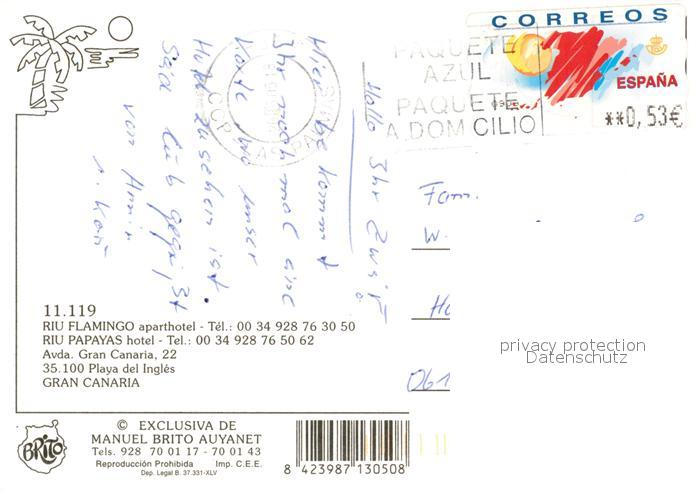 CORREOS
ESPAÑA
**0,53€
PAQUETE
AZUL
PAQUETE
A DOMICILIO
CCP LAS PALMAS
Hallo Ihr Zwei
Hier bekommt
Ihr noch mal eine
Karte wo unser
Hotel zusehen ist.
Seid lieb gegrüßt
von
u.
Fam.
W.
H
061
privacy protection
Datenschutz
11.119
RIU FLAMINGO aparthotel - Tél.: 00 34 928 76 30 50
RIU PAPAYAS hotel - Tel.: 00 34 928 76 50 62
Avda. Gran Canaria, 22
35.100 Playa del Inglés
GRAN CANARIA
BRITO
© EXCLUSIVA DE
MANUEL BRITO AUYANET
Tels. 928 70 01 17 - 70 01 43
Reproducción Prohibida Imp. C.E.E.
Dep. Legal B. 37.331-XLV
8 423987 130508